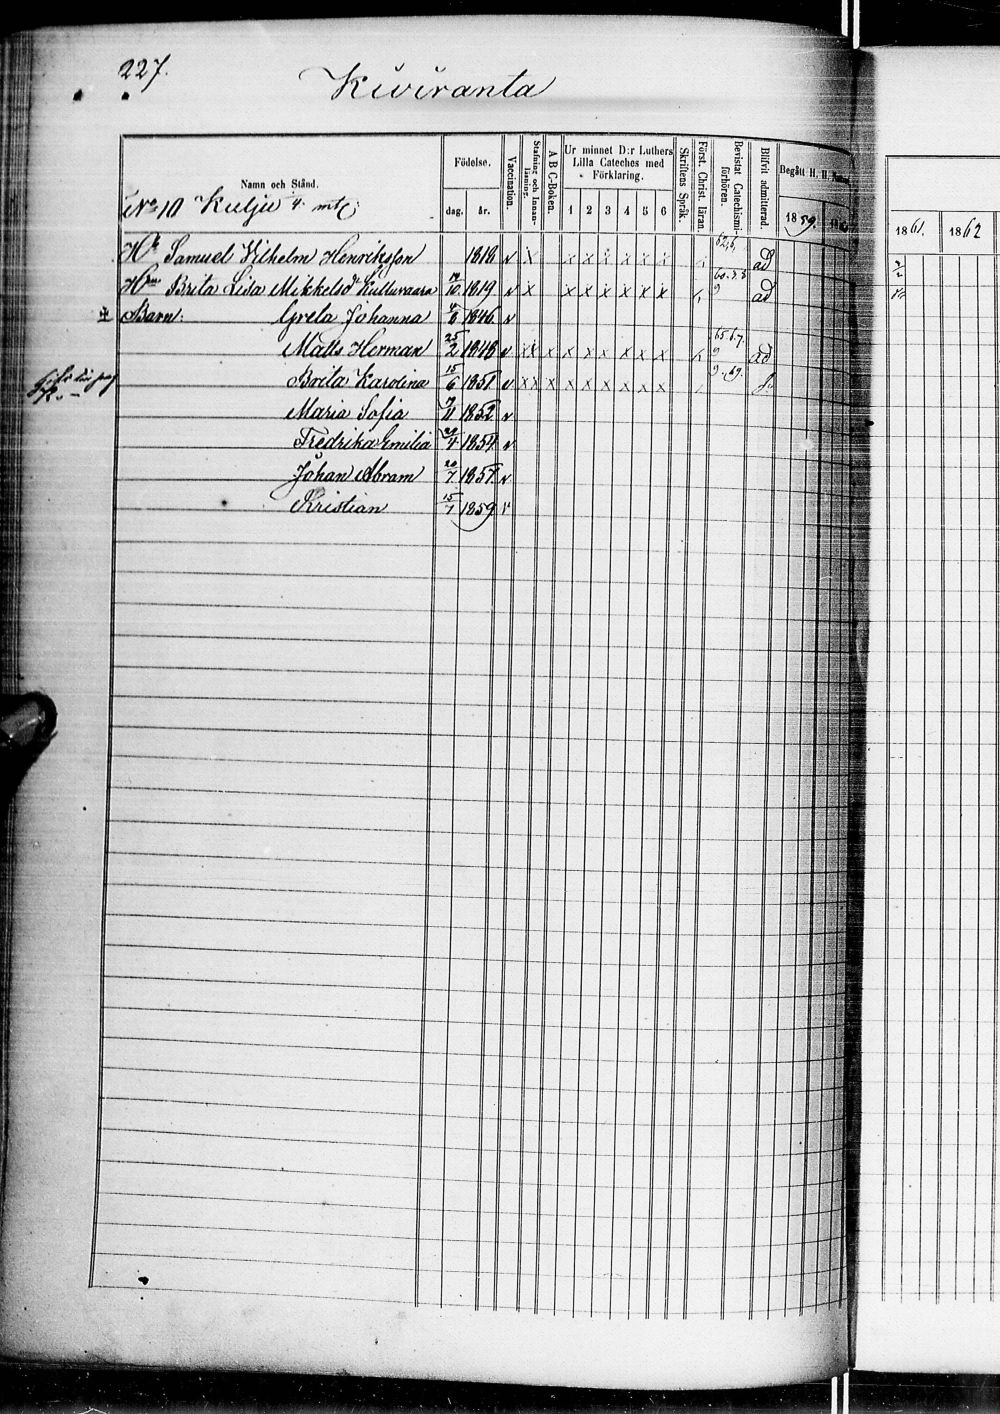 227.
Kiviranta
Namn och Stånd.
Födelse.
dag. år.
Vaccination.
Stafning och Innan-läsning.
A B C-Boken.
Ur minnet D:r Luthers Lilla Cateches med Förklaring.
1 2 3 4 5 6
Skriftens Språk.
Först. Christ. läran.
Bevistat Catechismi-förhören.
Blifvit admitterad.
Begått H. H.
1859.
1861. 1862
No 10 Kulju
Samuel Vilhelm Henriksson 1818 v x x x x x x x ad
Brita Lisa Mikkelsd Kulluvaara 10 1819 v x x x x x x x ad
Barn: Greta Johanna 6 1846 v
Matts Herman 25/2 1848 v x x x x x x x x x 65.6.7. ad
Brita Karolina 15/6 1851 v x x x x x x x x x
Maria Sofia 11 1852 v
Fredrika Emilia 4 1854 v
Johan Abram 20/7 1857 v
Kristian 15/7 1859 v